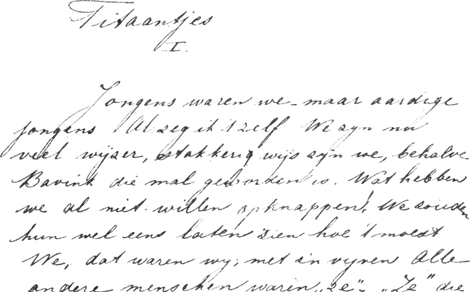 Titaantjes
I.
Jongens waren we – maar aardige
jongens Al zeg ik 't zelf We zyn nu
veel wijzer, stakkerig wijs zyn we, behalve
Bavink die mal geworden is. Wat hebben
we al niet willen opknappen! We zouden
hun wel eens laten zien hoe 't moest
We, dat waren wy, met zn vyven Alle
andere menschen waren „ze". „Ze" die